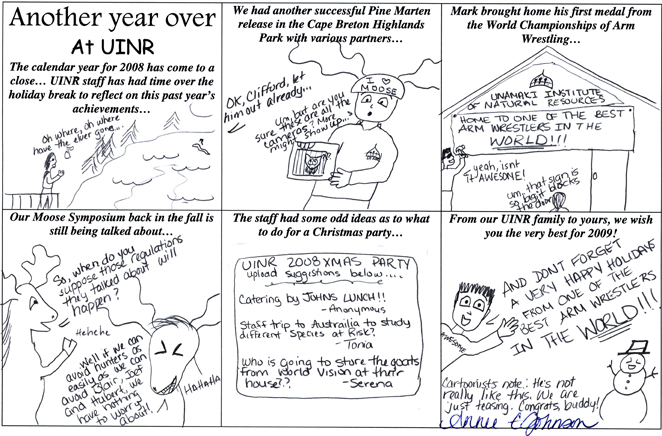 Another year over
At UINR
The calendar year for 2008 has come to a
close… UINR staff has had time over the
holiday break to reflect on this past year's
achievements…
Oh where, oh where
have the elver gone...
We had another successful Pine Marten
release in the Cape Breton Highlands
Park with various partners…
I ♡
MOOSE
OK, Clifford, let
him out already...
um, but are you
sure these are all the
cameras? More
might show up...
Mark brought home his first medal from
the World Championships of Arm
Wrestling…
UNAMAKI INSTITUTE
OF NATURAL RESOURCES
HOME TO ONE OF THE BEST
ARM WRESTLERS IN THE
WORLD!!!
yeah, isnt
it AWESOME!
um, that sign is
so big it blocks
the door
Our Moose Symposium back in the fall is
still being talked about…
So, when do you
suppose those regulations
they talked about will
happen?
Hehehe
Well if we can
avoid hunters as
easily as we can
avoid Blair, Joef
and Hubert, we
have nothing
to worry
about!
HAHAHA
The staff had some odd ideas as to what
to do for a Christmas party…
UINR 2008 XMAS PARTY
upload suggistions below....
Catering by JOHNS LUNCH!!
-Anonymous
Staff trip to Austrailia to study
different Species at Risk?
-Toria
Who is going to store the goats
from World Vision at their
house??
-Serena
From our UINR family to yours, we wish
you the very best for 2009!
AND DONT FORGET
A VERY HAPPY HOLIDAYS
FROM ONE OF THE
BEST ARM WRESTLERS
IN THE WORLD!!!
AWESOME
Cartoonists note: He's not
really like this. We are
just teasing. Congrats, buddy!
Annie E Johnson